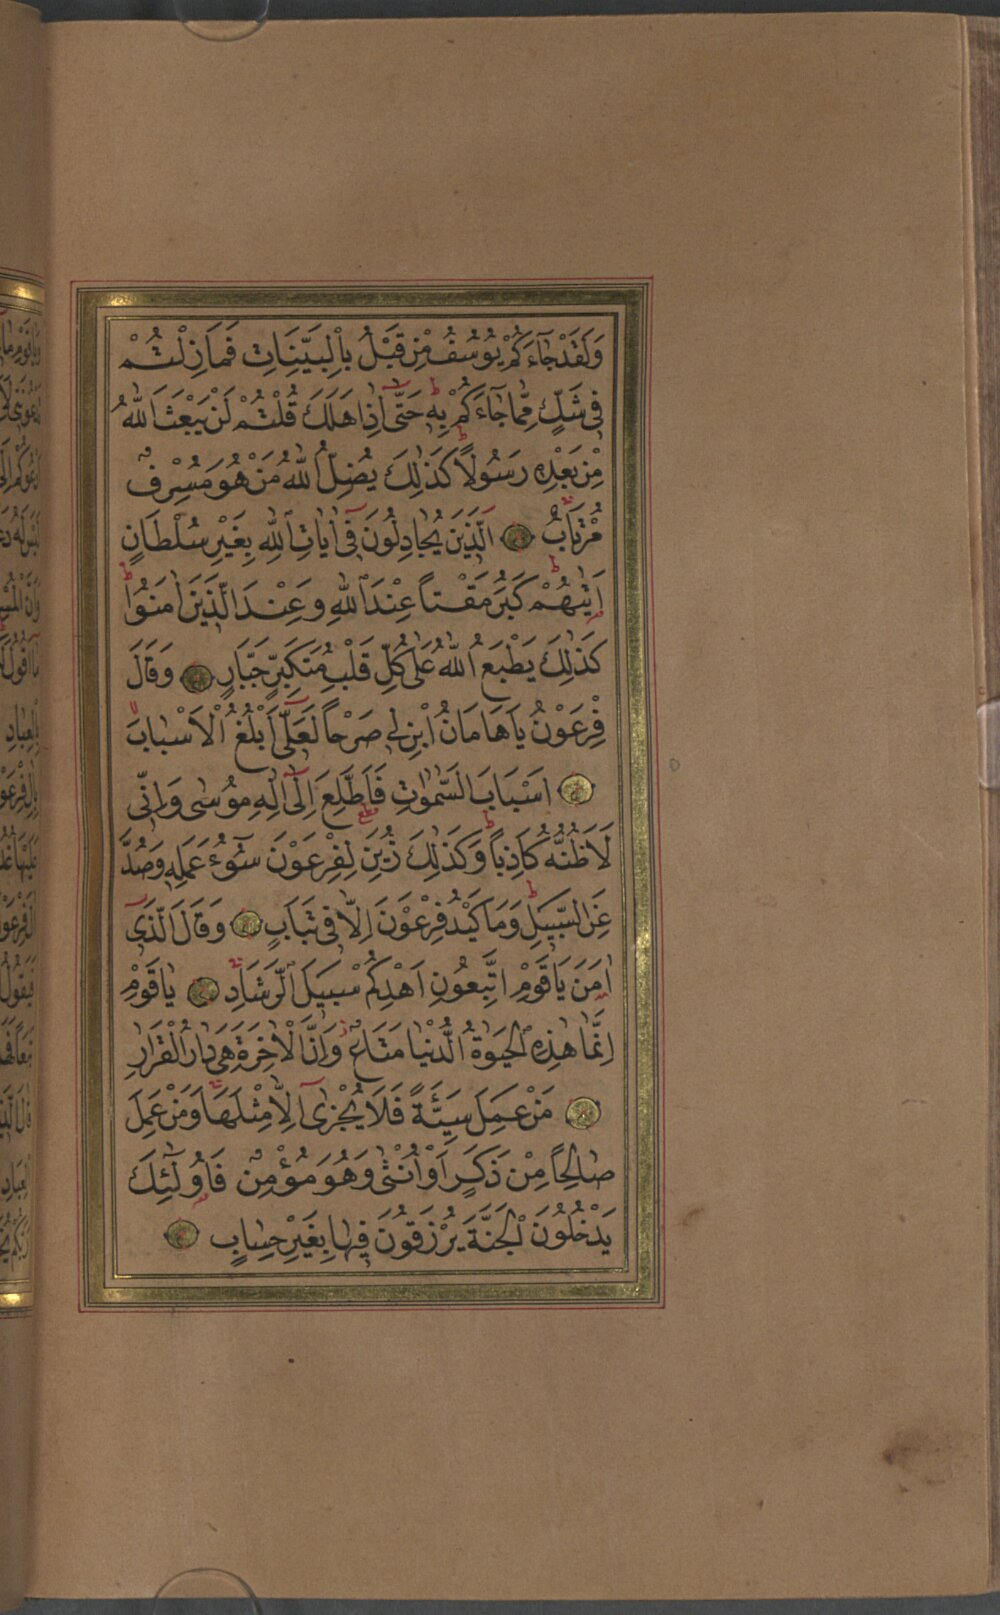 وَلَقَدْ جَآءَكُمْ يُوسُفُ مِنْ قَبْلُ بِالْبَيِّنَاتِ فَمَا زِلْتُمْ
فِى شَكٍّ مِمَّا جَآءَكُمْ بِهِ حَتّٰٓى اِذَا هَلَكَ قُلْتُمْ لَنْ يَبْعَثَ اللّٰهُ
مِنْ بَعْدِهِ رَسُولًا كَذٰلِكَ يُضِلُّ اللّٰهُ مَنْ هُوَ مُسْرِفٌ
مُرْتَابٌ اَلَّذِينَ يُجَادِلُونَ فِٓى اٰيَاتِ اللّٰهِ بِغَيْرِ سُلْطَانٍ
اَتٰيهُمْ كَبُرَ مَقْتًا عِنْدَ اللّٰهِ وَعِنْدَ الَّذِينَ اٰمَنُوا
كَذٰلِكَ يَطْبَعُ اللّٰهُ عَلٰى كُلِّ قَلْبِ مُتَكَبِّرٍ جَبَّارٍ وَقَالَ
فِرْعَوْنُ يَاهَامَانُ ابْنِ لِى صَرْحًا لَعَلِّٓى اَبْلُغُ الْاَسْبَابَ
اَسْبَابَ السَّمٰوَاتِ فَاَطَّلِعَ اِلٰٓى اِلٰهِ مُوسٰى وَاِنِّى
لَاَظُنُّهُ كَاذِبًا وَكَذٰلِكَ زُيِّنَ لِفِرْعَوْنَ سُٓوءُ عَمَلِهِ وَصُدَّ
عَنِ السَّبِيلِ وَمَا كَيْدُ فِرْعَوْنَ اِلَّا فِى تَبَابٍ وَقَالَ الَّذِٓى
اٰمَنَ يَاقَوْمِ اتَّبِعُونِ اَهْدِكُمْ سَبِيلَ الرَّشَادِ يَاقَوْمِ
اِنَّمَا هٰذِهِ الْحَيٰوةُ الدُّنْيَا مَتَاعٌ وَاِنَّ الْاٰخِرَةَ هِىَ دَارُ الْقَرَارِ
مَنْ عَمِلَ سَيِّئَةً فَلَا يُجْزٰٓى اِلَّا مِثْلَهَا وَمَنْ عَمِلَ
صَالِحًا مِنْ ذَكَرٍ اَوْ اُنْثٰى وَهُوَ مُؤْمِنٌ فَاُولٰٓئِكَ
يَدْخُلُونَ الْجَنَّةَ يُرْزَقُونَ فِيهَا بِغَيْرِ حِسَابٍ